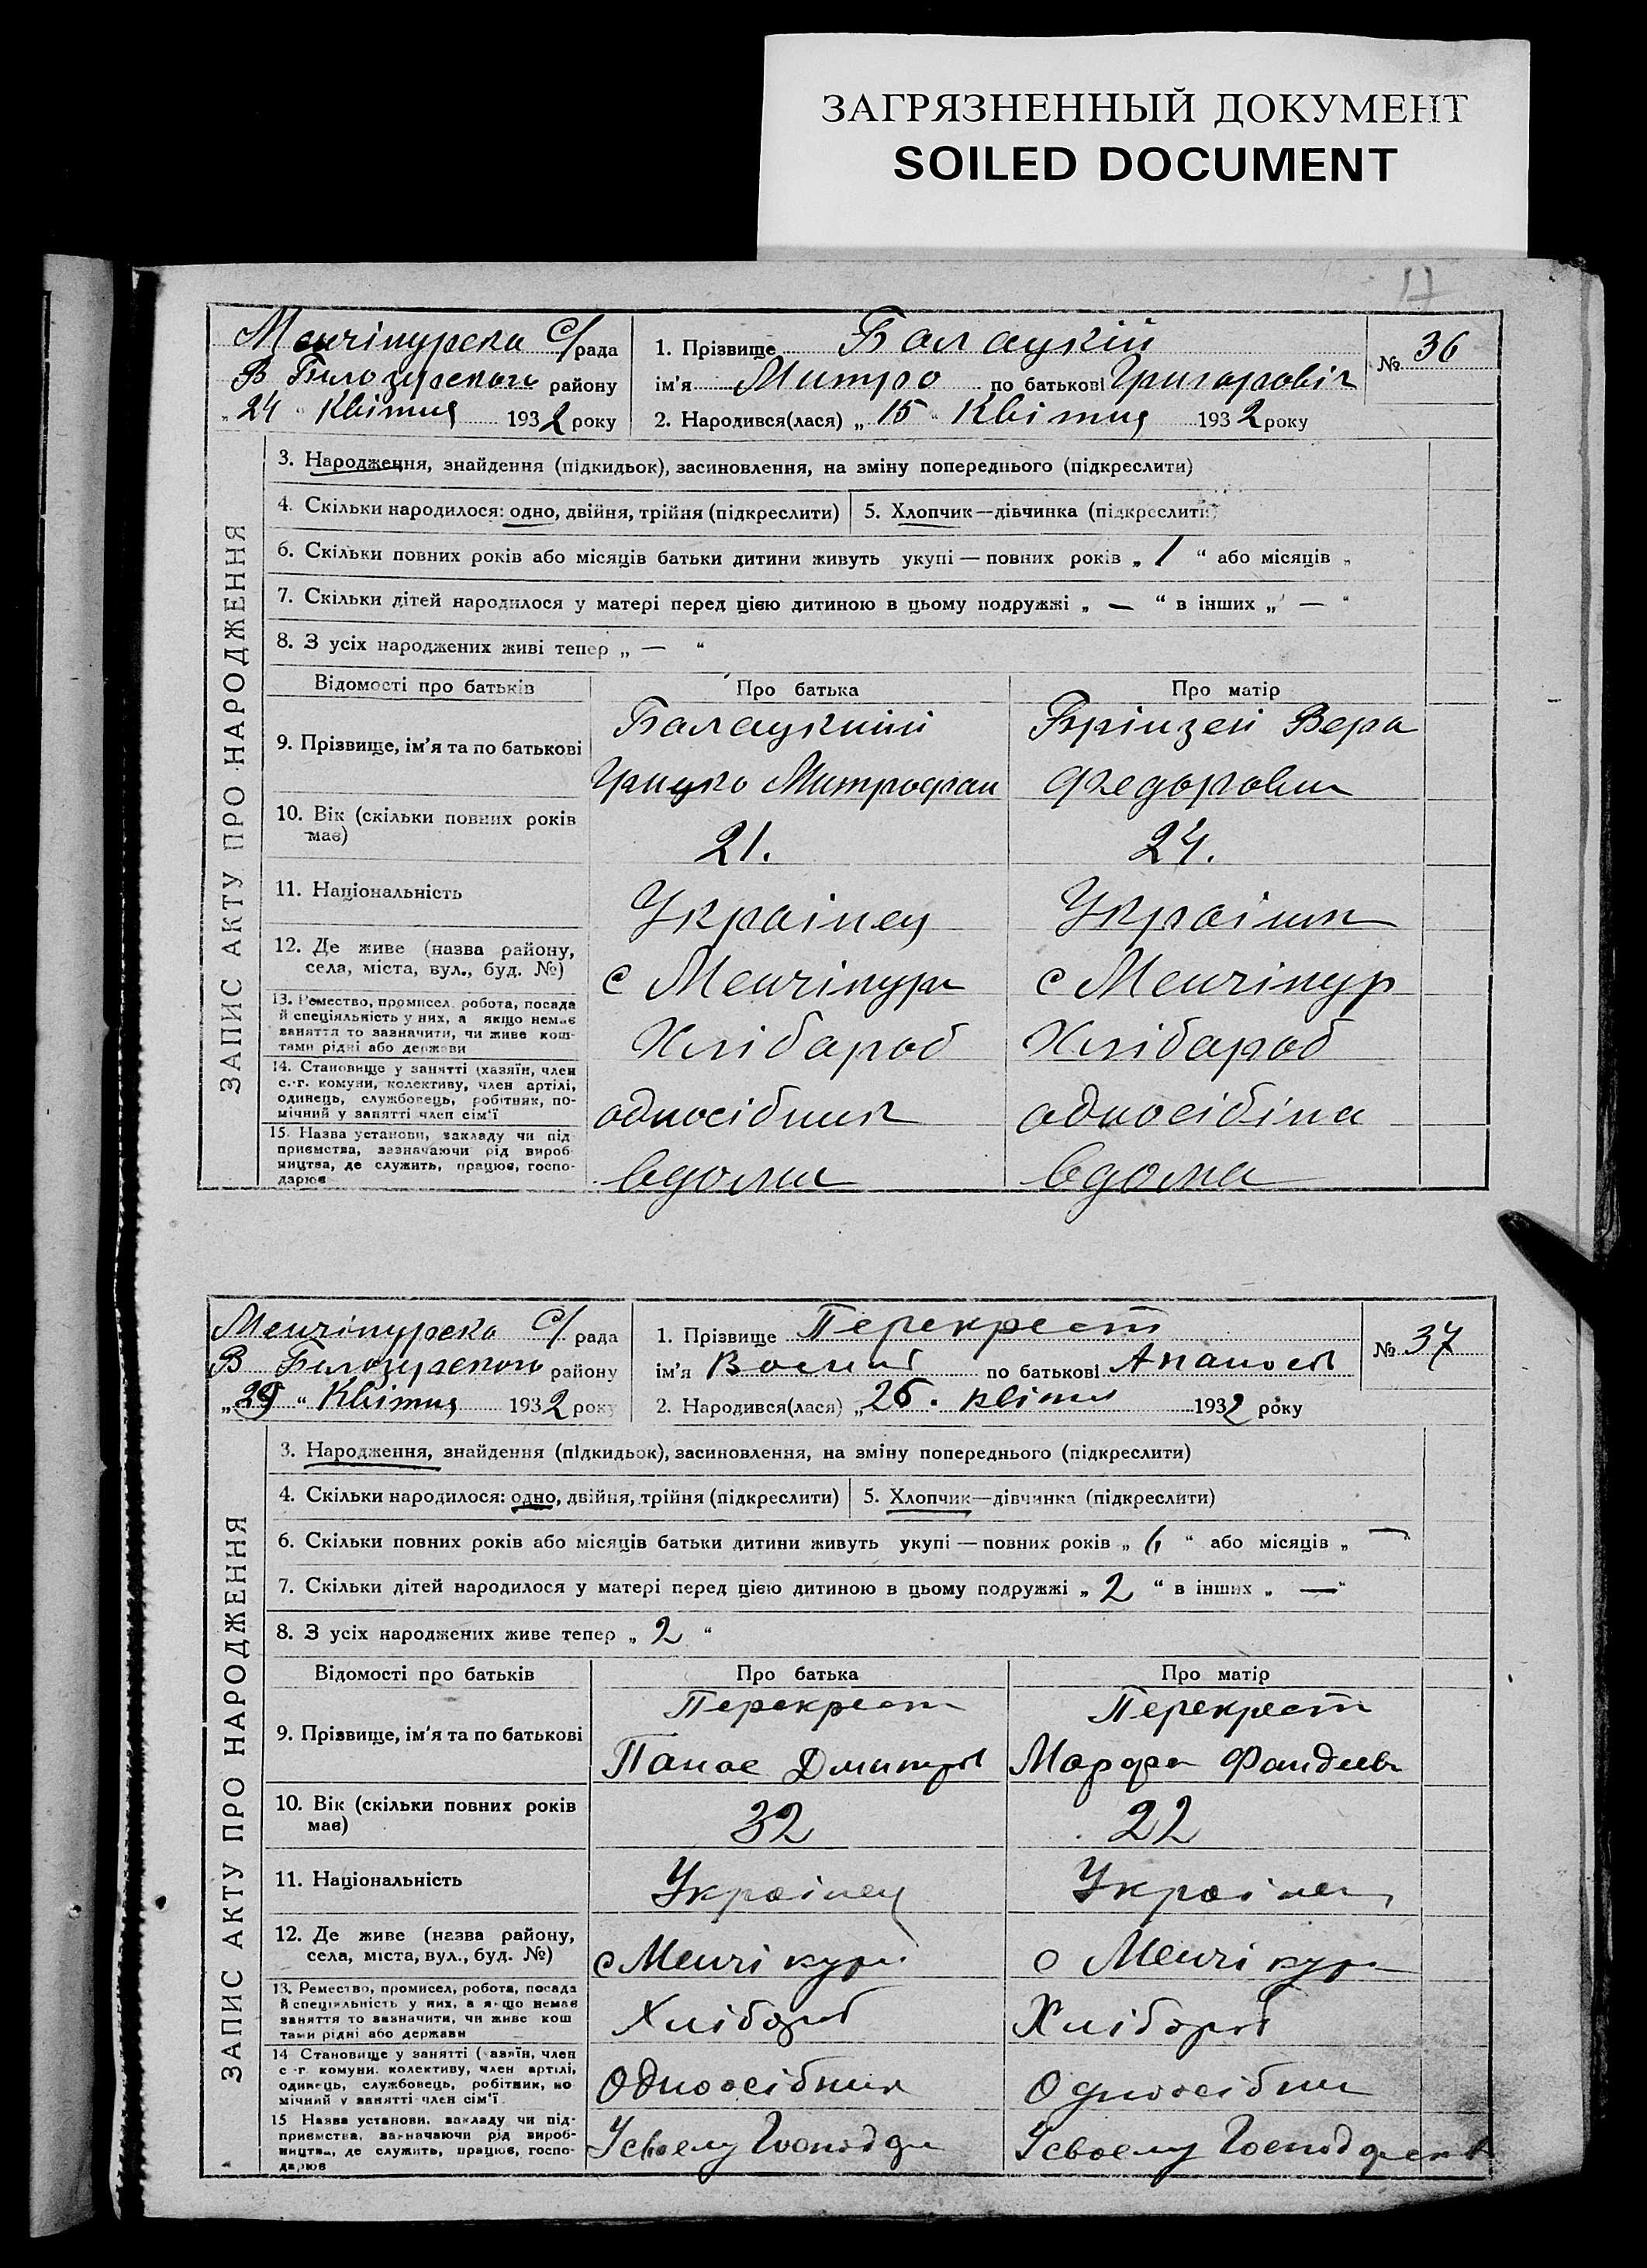 ЗАГРЯЗНЕННЫЙ ДОКУМЕНТ
SOILED DOCUMENT
17
Менчікурска С/рада
В Білозерского району
„24“ Квітня 1932 року
1. Прізвище Балацкій
ім'я Митро по батькові Григоровіч
№ 36
2. Народився(лася) „15“ Квітня 1932 року
ЗАПИС АКТУ ПРО НАРОДЖЕННЯ
3. Народження, знайдення (підкидьок), засиновлення, на зміну попереднього (підкреслити)
4. Скільки народилося: одно, двійня, трійня (підкреслити) 5. Хлопчик—дівчинка (підкреслити)
6. Скільки повних років або місяців батьки дитини живуть укупі — повних років „ 1 “ або місяців „
7. Скільки дітей народилося у матері перед цією дитиною в цьому подружжі „ — “ в інших „ — “
8. З усіх народжених живі тепер „ — “
Відомості про батьків Про батька Про матір
9. Прізвище, ім'я та по батькові
Балацкий Брінзей Вера
Грицко Митрофан Федоровна
10. Вік (скільки повних років має)
21. 24.
11. Національність
Українец Українк
12. Де живе (назва району, села, міста, вул., буд. №)
с Менчікур с Менчікур
13. Ремество, промисел, робота, посада
й спеціяльність у них, а якщо немає
заняття то зазначити, чи живе кош-
тами рідні або держави
Хлібароб Хлібароб
14. Становище у занятті (хазяїн, член
с.-г. комуни, колективу, член артілі,
одинець, службовець, робітник, по-
мічний у занятті член сім'ї
односібник односібіна
15. Назва установи, закладу чи під-
приємства, зазначаючи рід вироб-
ництва, де служить, працює, госпо-
дарює
вдома вдома
Менчікурска С/рада
В Білозерского району
„29“ Квітня 1932 року
1. Прізвище Перекрест
ім'я по батькові
№ 37
2. Народився(лася) „26. квітня 1932 року
ЗАПИС АКТУ ПРО НАРОДЖЕННЯ
3. Народження, знайдення (підкидьок), засиновлення, на зміну попереднього (підкреслити)
4. Скільки народилося: одно, двійня, трійня (підкреслити) 5. Хлопчик—дівчинка (підкреслити)
6. Скільки повних років або місяців батьки дитини живуть укупі — повних років „ “ або місяців „ —
7. Скільки дітей народилося у матері перед цією дитиною в цьому подружжі „ 2 “ в інших „ — “
8. З усіх народжених живе тепер „ 2 “
Відомості про батьків Про батька Про матір
9. Прізвище, ім'я та по батькові
Перекрест Перекрест
Панас Дмитров Марфа
10. Вік (скільки повних років має)
32 22
11. Національність
Українец Українец
12. Де живе (назва району, села, міста, вул., буд. №)
с Менчікур с Менчікур
13. Ремество, промисел, робота, посада
й спеціяльність у них, а якщо немає
заняття то зазначити, чи живе кош
тами рідні або держави
Хлібороб Хлібороб
14 Становище у занятті (хазяїн, член
с-г. комуни, колективу, член артілі,
одинець, службовець, робітник, по
мічний у занятті член сім'ї
Одноосібник Одноосібни
15 Назва установи, закладу чи під-
приємства, зазначаючи рід вироб-
ництва, де служить, працює, госпо-
дарює
Усвоему Господар Усвоему